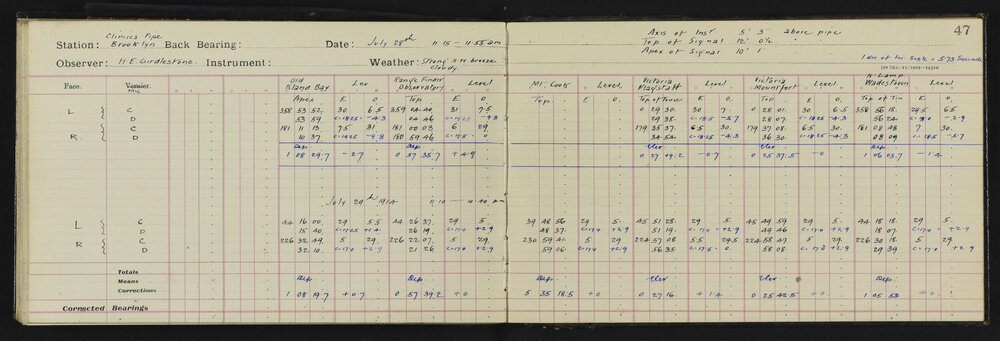 47
Climies Pipe
Station: Brooklyn Back Bearing: Date: July 28th 11·15 – 11·55 am
Axis of Inst 5' 3 above pipe
Top of Signal 12' 0½
Apex of Signal 10' 1
Observer: H E Girdlestone. Instrument: Weather: Strong N.W. breeze
Cloudy.
1 Div of Lev. Scale = 5·73 Seconds
Face. Vernier. Old Island Bay. Lev Range Finder Observatory Level Mt. Cook Level Victoria Flagstaff Level Victoria Mounfort Level N. Lamp Wadestown Level
Mic.
Apex E O. Top E O. Top E O. Top of Fence E O. Top E O. Top of Tin E O.
L C 358 53 52. 30 6.5 359 04 7.5 0 29 30. 30 7. 0 28 01. 30 6.5 358 56 18. 29.5 6.5
D 53 59. c·1825 –4.3 04 46 –9.8 29 38. –5.7 28 07. c·1825 –4.3 56 20. –2.9
R. C 181 11 13 7.5 31 181 00 03 6 29 179 35 37. 6.5 30. 179 37 08. 6.5 30. 181 08 48 7 30.
D 10 37. c·1925 –9.8 180 59 46 c·17.5 0 34 54. c·1825 –4.3 36 30. c·1825 –4.3 08 09 c·18.5 –5.7
Dep. Dep. Elev Elev Dep.
1 08 29.7 –2.7 0 57 35.7 +4.9 0 27 09.2 –0.7 0 25 37.5 –0 1 06 03.7 –1.4
July 29th 1914 – 4.40 pm
L C 44 16 00. 29 5.5 44 26 37. 29 5. 39 48 56 29 5 45 51 28. 29 5. 45 49 59 29 5. 44 18 18. 29 5.
D 15 40. c·17.25 +1.4 26 19. c·17.0 +2.9 48 37. c·17.0 +2.9 51 19. c·17.0 +2.9 49 46 c·17.0 +2.9 18 07. c·17.0 +2.9
R C 226 32 49. 5 29. 226 22 07. 5 29. 230 59 41. 5 29 224 57 08. 5.5 29.5 224 58 47. 5 29. 226 30 18. 5 29
D 32 10. c·17.0 +2.9 21 26 c·17.0 +2.9 59 06. c·17.0 +2.9 56 35. c·17.5 0. 58 08. c·17.0 +2.9 29 39 c·17.0 +2.9
Totals
Means Dep. Dep. Dep. Elev Elev Dep.
Corrections 1 08 19.7 +0.7 0 57 39.2 +0 5 35 18.5 +0 0 27 16. +1.4 0 25 42.5 +0 1 05 53 +0
Corrected Bearings